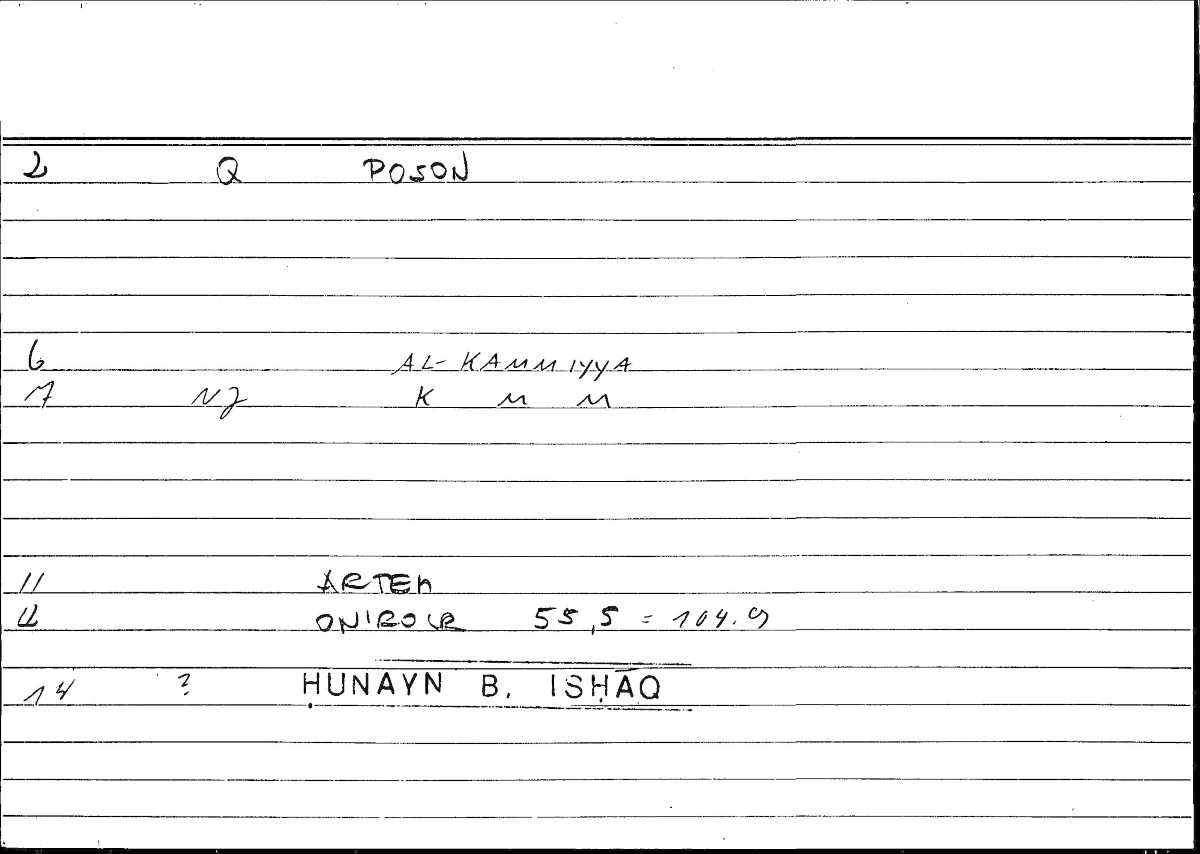 2 Q POSON
6 AL-KAMMIYYA
7 NJ K M M
11 ARTEM
12 ONIROCR 55,5 = 104.9
14 ? ḤUNAYN B. ISḤĀQ